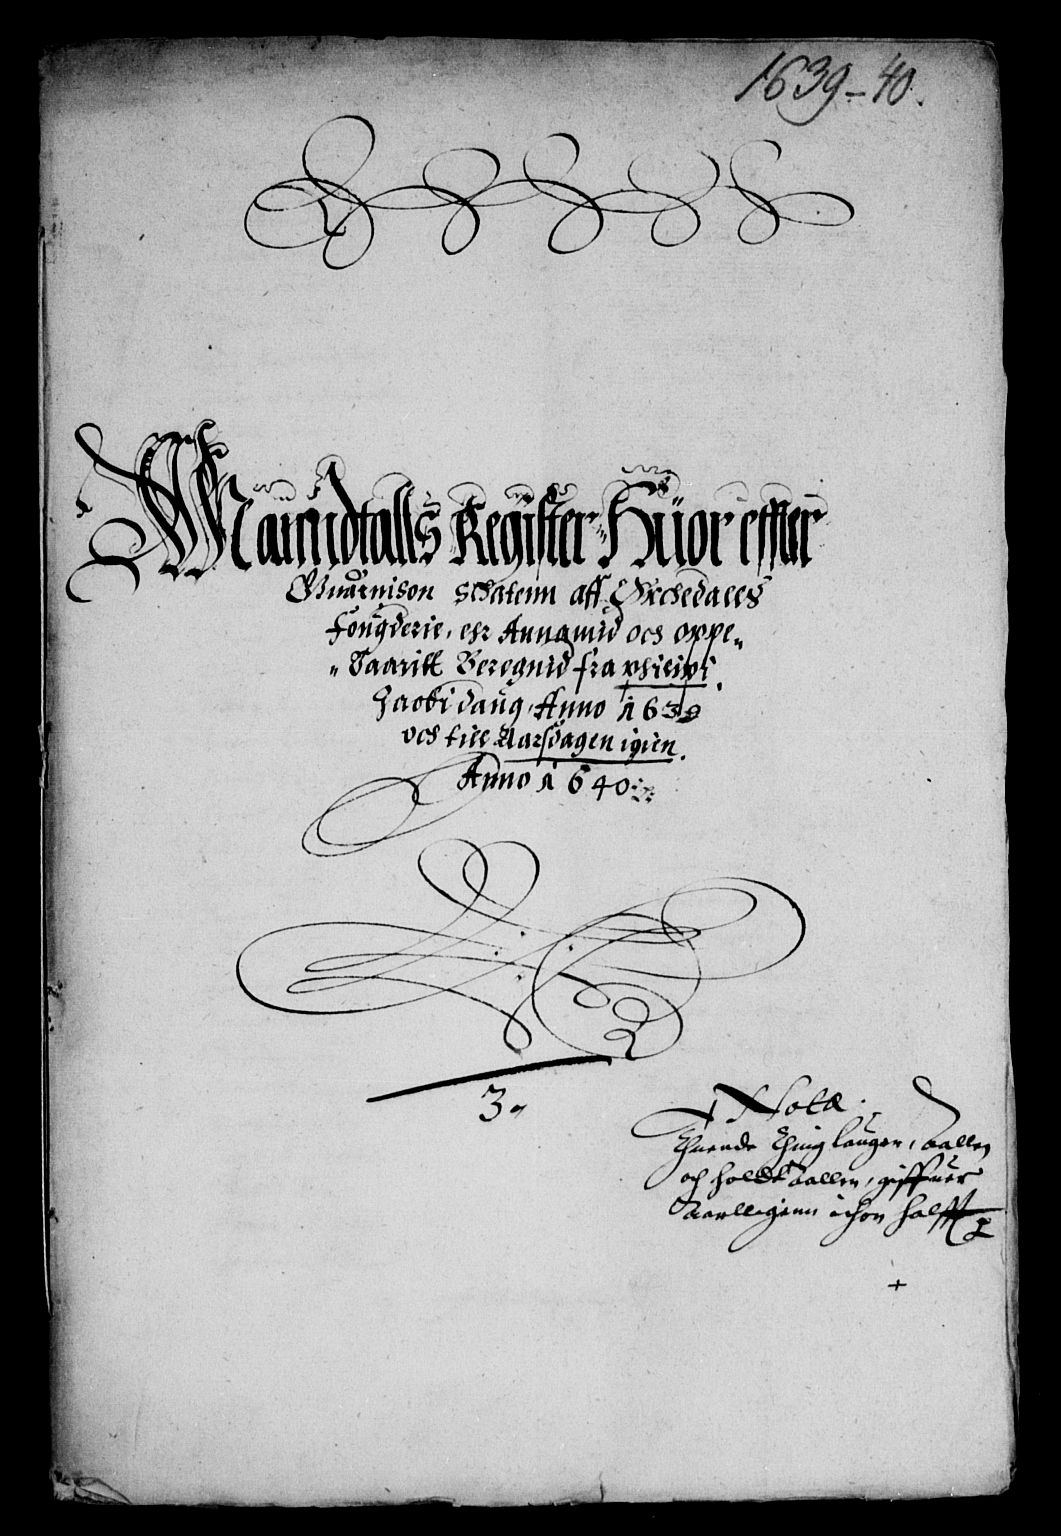 1639-40.
Manndtalls Register Huor effter
Guarnison Schatenn aff Orchedalls
Fougderie, ehr Annamid och oppe„
„Baaritt Beregnid fra philipi
Jacobi daug, Anno 1639
och till Aarsdagen igien.
Anno 1640
3„
Nota.
Thuende Thinglauger, Aallen
och holdt Aallen, giffuer
Aarlligenn ichon halfft
+